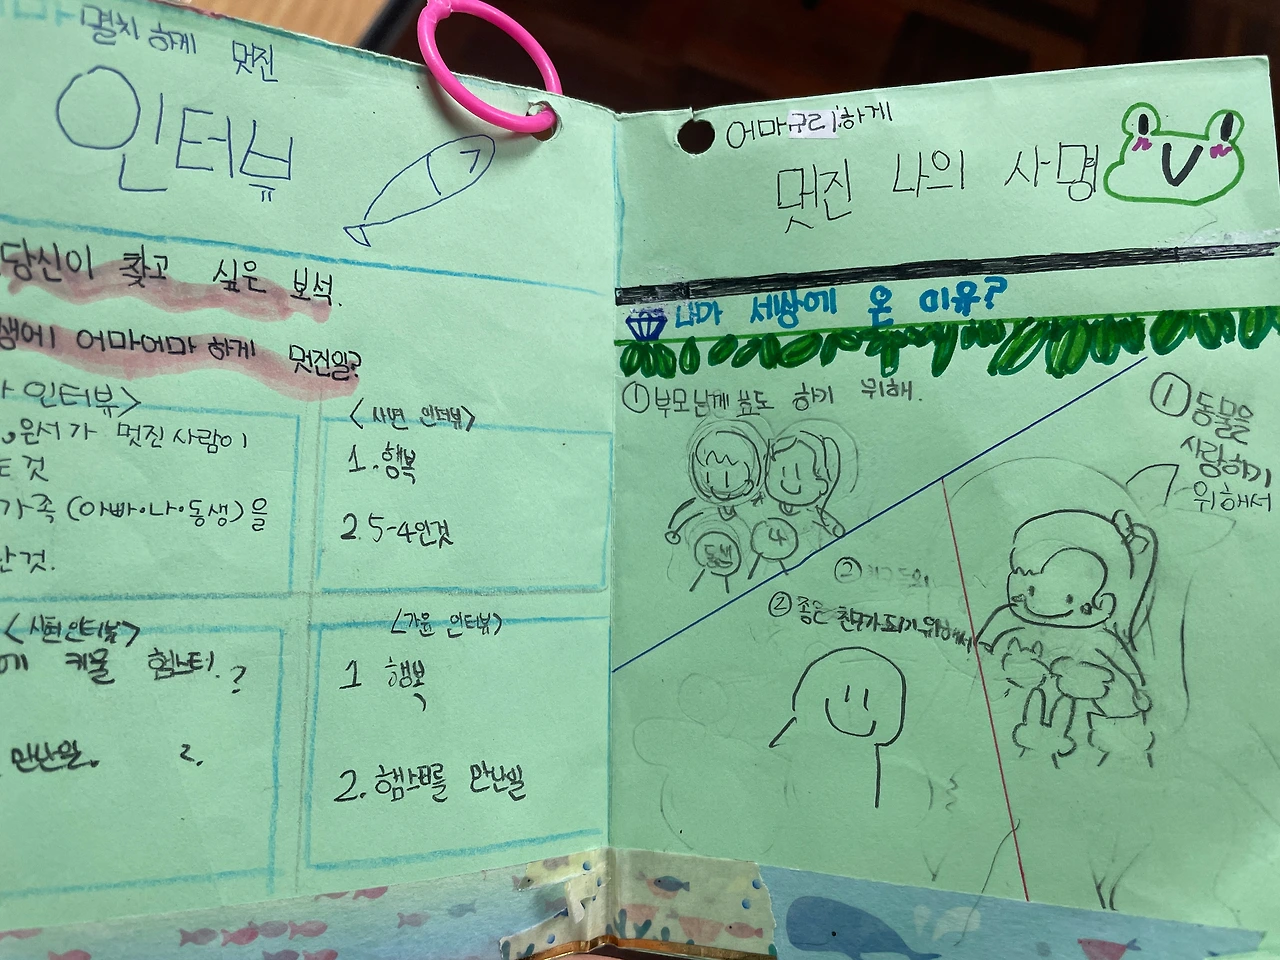 멸치 하게 멋진
인터뷰
당신이 찾고 싶은 보석.
생에 어마어마 하게 멋진일?
인터뷰>
윤서가 멋진 사람이
것
가족 (아빠·나·동생)을
것.
<사면 인터뷰>
1. 행복
2. 5-4인것
<시현 인터뷰>
에 키울 햄스터. ?
만난일. 2.
<가윤 인터뷰>
1 행복
2. 햄스터를 만난일
어마구리하게
멋진 나의 사명
내가 세상에 온 이유?
① 부모님께 효도 하기 위해.
동생
나
① 동물을
사랑하기
위해서
②
② 좋은 친구가 되기 위해서